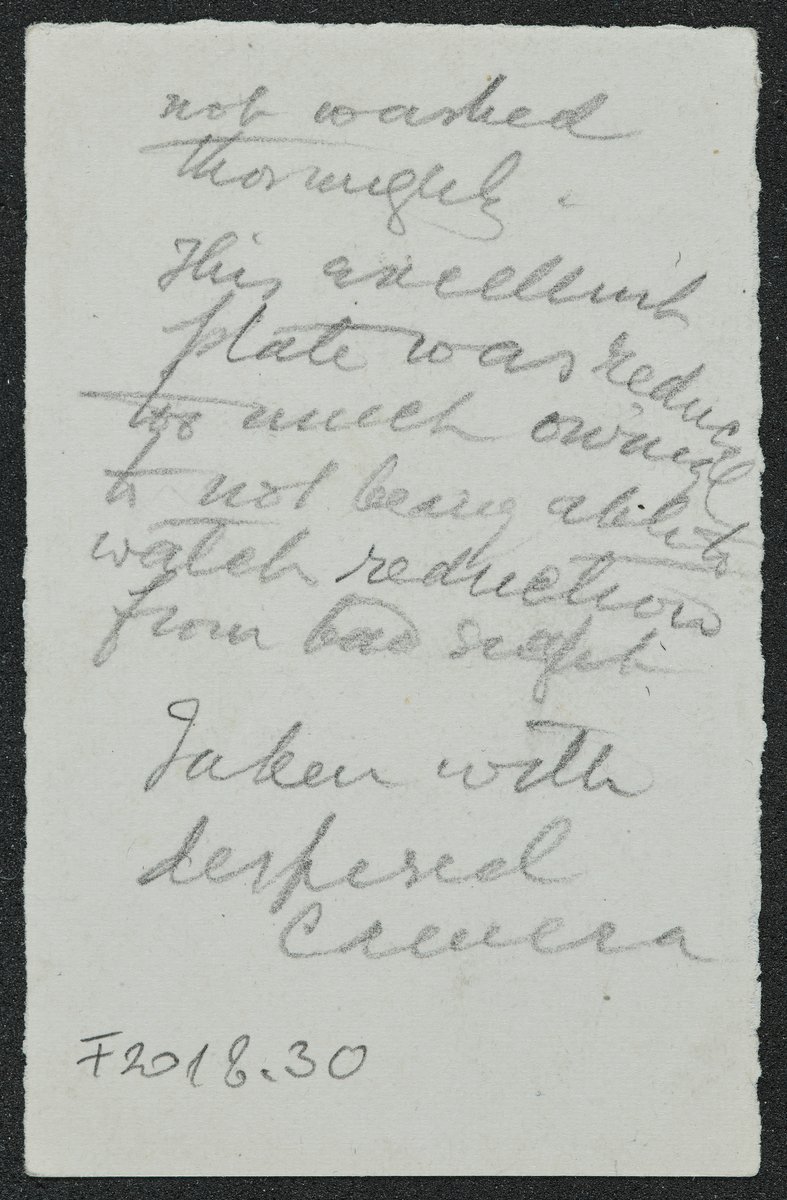 not washed
thoroughly.
This excellent
plate was reduced
too much owing
to not being able to
watch reduction
from bad sight
Taken with
despised
Camera
F2018.30